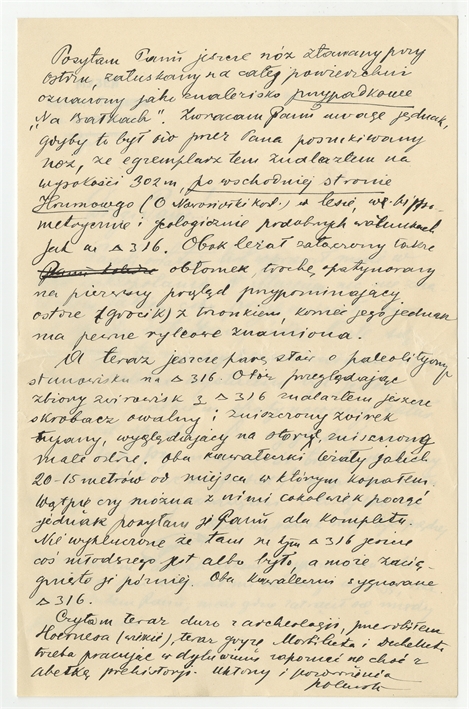 Posyłam Panu jeszcze nóż złamany przy
ostrzu, załuskany na całej powierzchni
oznaczony jako znalezisko przypadkowe
„Na Bratkach". Zwracam Panu uwagę jednak,
gdyby to był ów przez Pana poszukiwany
nóż, że egzemplarz ten znalazłem na
wysokości 302 m, po wschodniej stronie
w lesie, w
metrycznie i geologicznie podobnych warunkach
jak na △ 316. Obok leżał załączony także
obłomek, trochę spatynowany
na pierwszy pogląd przypominający
ostrze (grocik) z trzonkiem, koniec jego jednak
ma pewne rylcowe znamiona.
A teraz jeszcze parę słów o paleolitycznym
stanowisku na △ 316. Otóż przeglądając
zbiory żwirowisk z △ 316 znalazłem jeszcze
skrobacz owalny i zniszczony żwirek
łupany, wyglądający na stary, zniszczony
małe ostrze. Oba kawałeczki leżały jakich
20-15 metrów od miejsca w którym kopałem.
Wątpię czy można z nimi cokolwiek począć
jednak posyłam je Panu dla kompletu.
Nie wykluczone że tam na tym △ 316 jeszcze
coś młodszego jest albo było, a może zacią-
gnięto je później. Oba kawałeczki sygnowane
△ 316.
Czytam teraz dużo z archeologji, przerobiłem
Hoernesa teraz gryzę Mortilleta i Decheletta
trzeba pracując w dyluwium zapoznać się choć z
abetką prehistorji. Ukłony i pozdrowienia